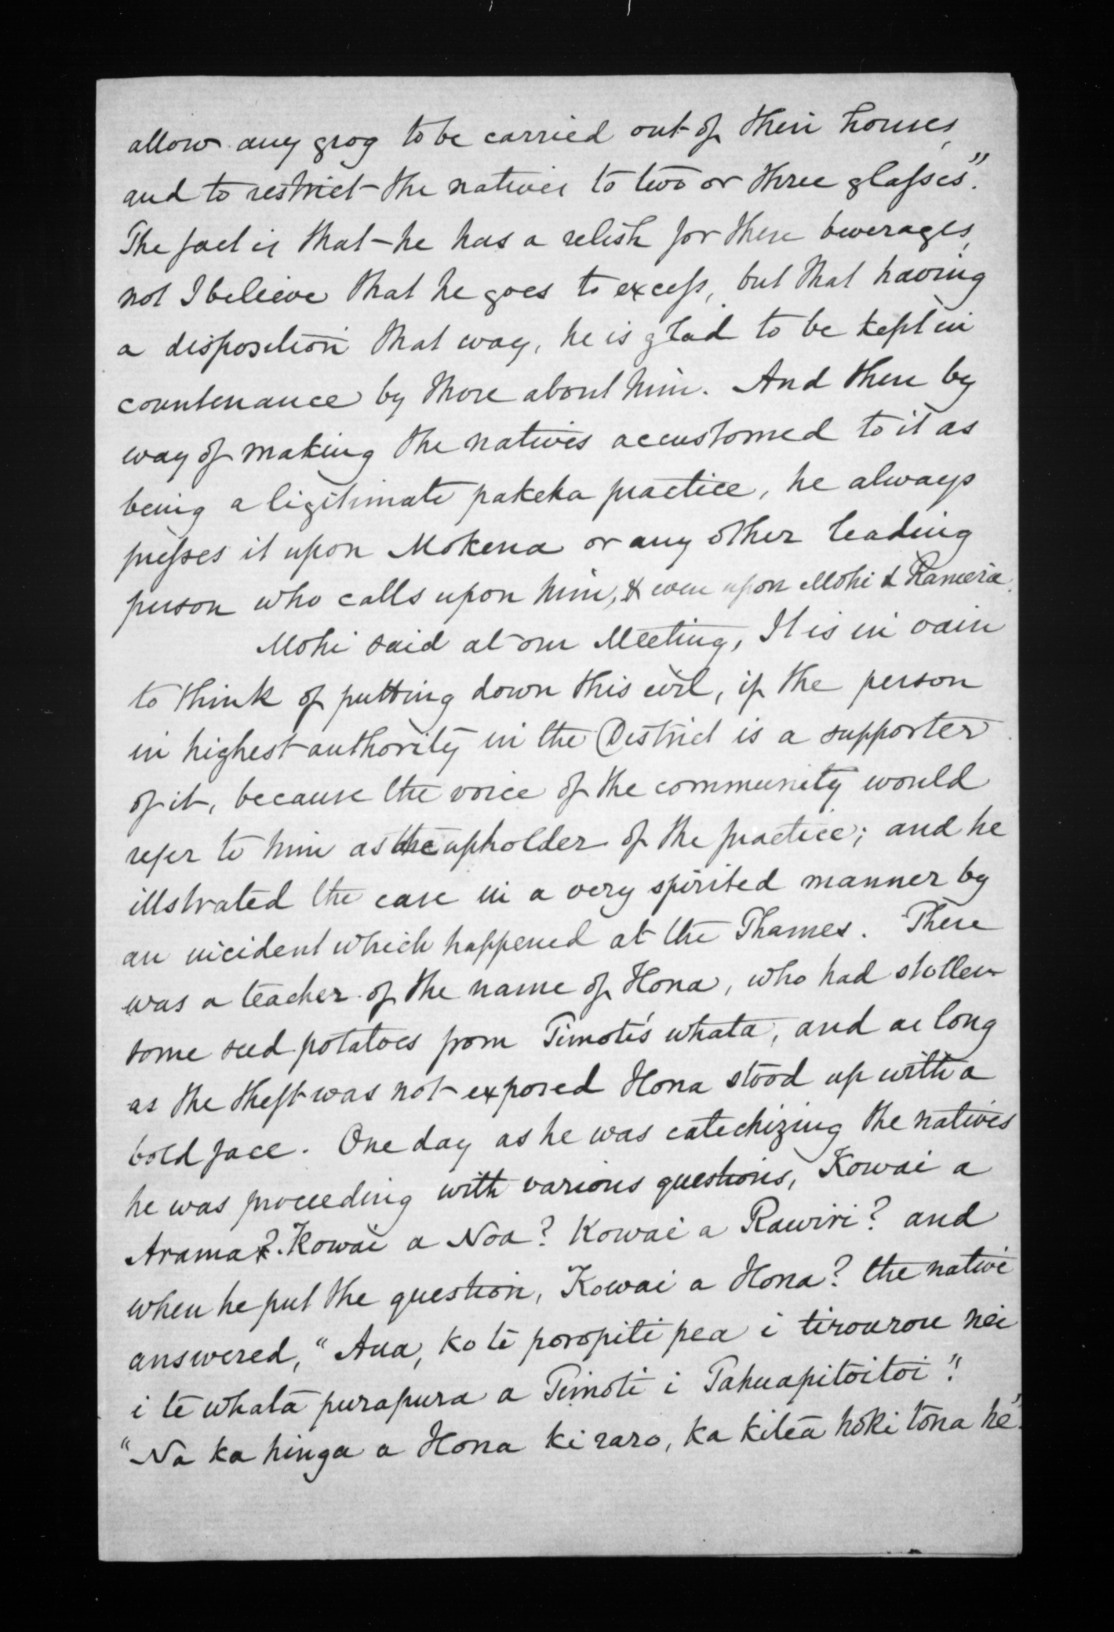 allow any grog to be carried out of their houses,
and to restrict the natives to two or three glasses".
The fact is that he has a relish for these beverages,
not I believe that he goes to excess, but that having
a disposition that way, he is glad to be kept in
countenance by those about him. And then by
way of making the natives accustomed to it as
being a legitimate pakeka practice, he always
presses it upon Mokena or any other leading
person who calls upon him, & even upon Mohi &
Mohi said at our Meeting, It is in vain
to think of putting down this evil, if the person
in highest authority in the District is a supporter
of it, because the voice of the community would
refer to him as the upholder of the practice; and he
illstrated the case in a very spirited manner by
an incident which happened at the Thames. There
was a teacher of the name of Hona, who had stollen
some seed potatoes from Timoti's whata, and as long
as the theft was not exposed Hona stood up with a
bold face. One day as he was catechizing the natives
he was proceeding with various questions, Kowai a
Arama? Kowai a Noa? Kowai a Rawiri? and
when he put the question, Kowai a Hona? the native
answered, "Aua, ko te poropiti pea i tirourou nei
i te whata purapura a Timoti i Tahuapitoitoi".
"Na ka hinga a Hona ki raro, ka kitea hoki tona he".